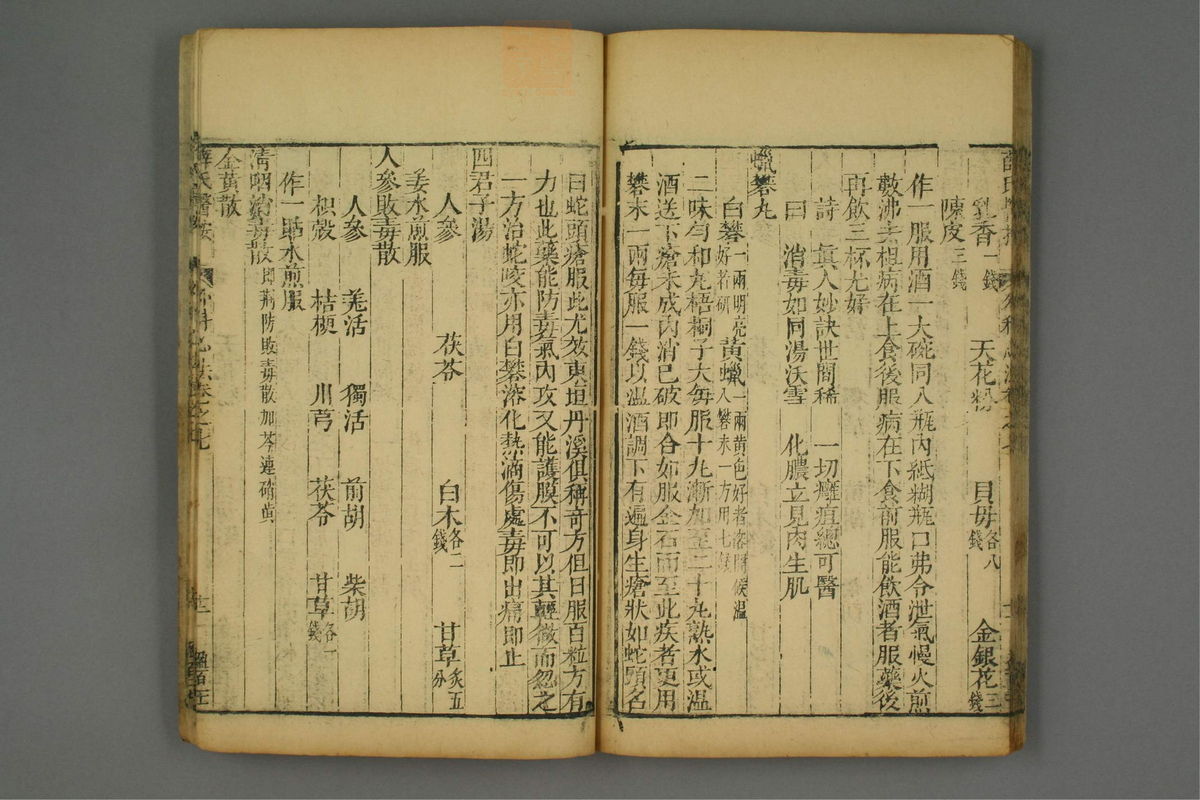 乳香一錢 天花粉 貝母各八錢 金銀花三錢
陳皮三錢
作一服用酒一大碗同入瓶內紙糊瓶口弗令泄氣慢火煎
數沸去柤病在上食後服病在下食前服能飲酒者服藥後
再飲三杯尤好
詩 眞人妙訣世間稀 一切癰疽總可醫
曰 消毒如同湯沃雪 化膿立見肉生肌
蠟礬丸
白礬一兩明亮好者研 黃蠟一兩黃色好者溶開候溫入礬末一方用七錢
二味勻和丸梧桐子大每服十丸漸加至二十丸熟水或溫
酒送下瘡未成內消已破即合如服金石而至此疾者更用
礬末一兩每服一錢以溫酒調下有遍身生瘡狀如蛇頭名
曰蛇頭瘡服此尤效東垣丹溪俱稱奇方但日服百粒方有
力也此藥能防毒氣內攻又能護膜不可以其輕微而忽之
一方治蛇咬亦用白礬溶化熱滴傷處毒即出痛即止
四君子湯
人參 茯苓 白朮各二錢 甘草炙五分
姜水煎服
人參敗毒散
人參 羌活 獨活 前胡 柴胡
枳殼 桔梗 川芎 茯苓 甘草各一錢
作一服水煎服
淸咽消毒散即荊防敗毒散加芩連硝黃
金黃散